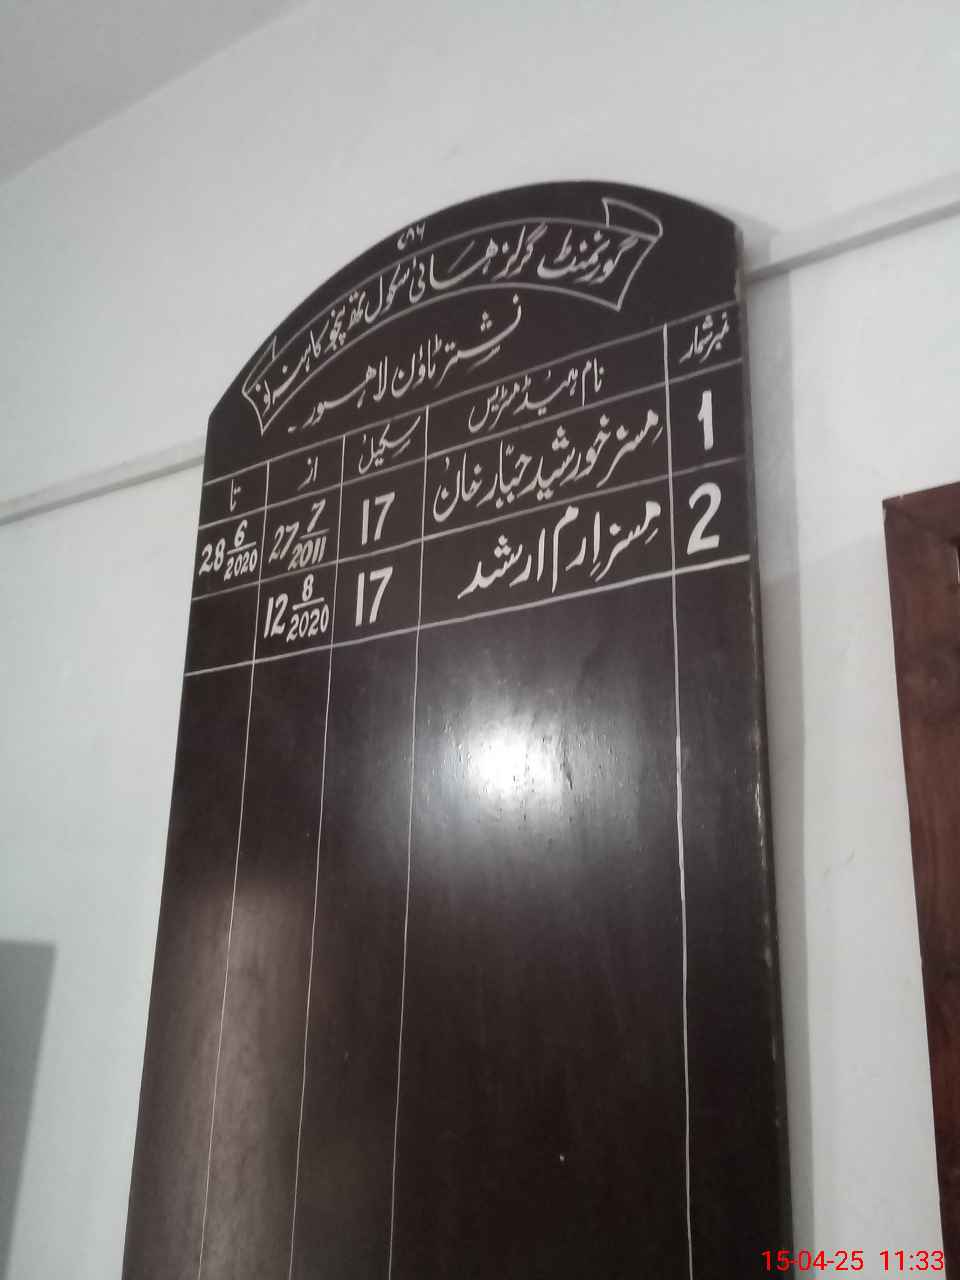 ۷۸۶
گورنمنٹ گرلز ہائی سکول تھ پنجو کاہنہ نو
نشتر ٹاؤن لاہور۔
نمبر شمار نام ہیڈ مسٹریس سکیل از تا
1 مسز خورشید جبّار خان 17 27 7/2011 28 6/2020
2 مسز اِرم ارشد 17 12 8/2020
15-04-25 11:33